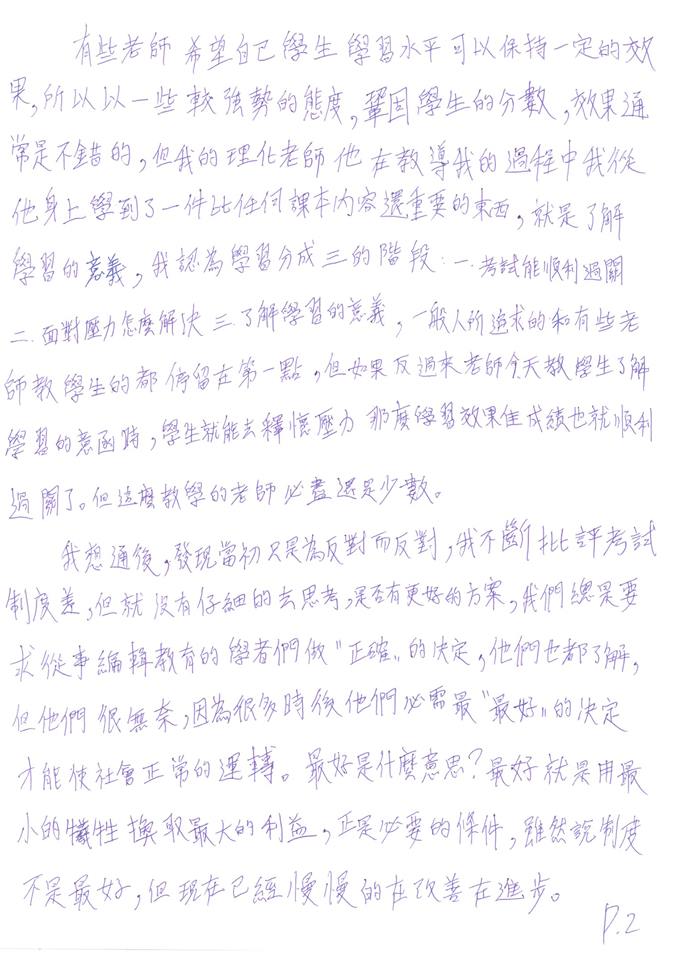 有些老師 希望自已學生 學習水平可以保持一定的效
果,所以以一些較強勢的態度,鞏固學生的分數,效果通
常是不錯的,但我的理化老師他在教導我的過程中我從
他身上學到了一件比任何課本內容還重要的東西,就是了解
學習的意義,我認為學習分成三的階段:一.考試能順利過關
二.面對壓力怎麼解決 三.了解學習的意義,一般人所追求的和有些老
師教學生的都停留在第一點,但如果反過來老師今天教學生了解
學習的意函時,學生就能去釋懷壓力 那麼學習效果佳成績也就順利
過關了。但這麼教學的老師必盡還是少數。
我想通後,發現當初只是為反對而反對,我不斷批評考試
制度差,但就沒有仔細的去思考,是否有更好的方案,我們總是要
求從事編輯教育的學者們做"正確"的決定,他們也都了解,
但他們很無奈,因為很多時後他們必需最"最好"的決定
才能使社會正常的運轉。最好是什麼意思?最好就是用最
小的犧牲換取最大的利益,正是必要的條件,雖然說制度
不是最好,但現在已經慢慢的在改善在進步。
P.2